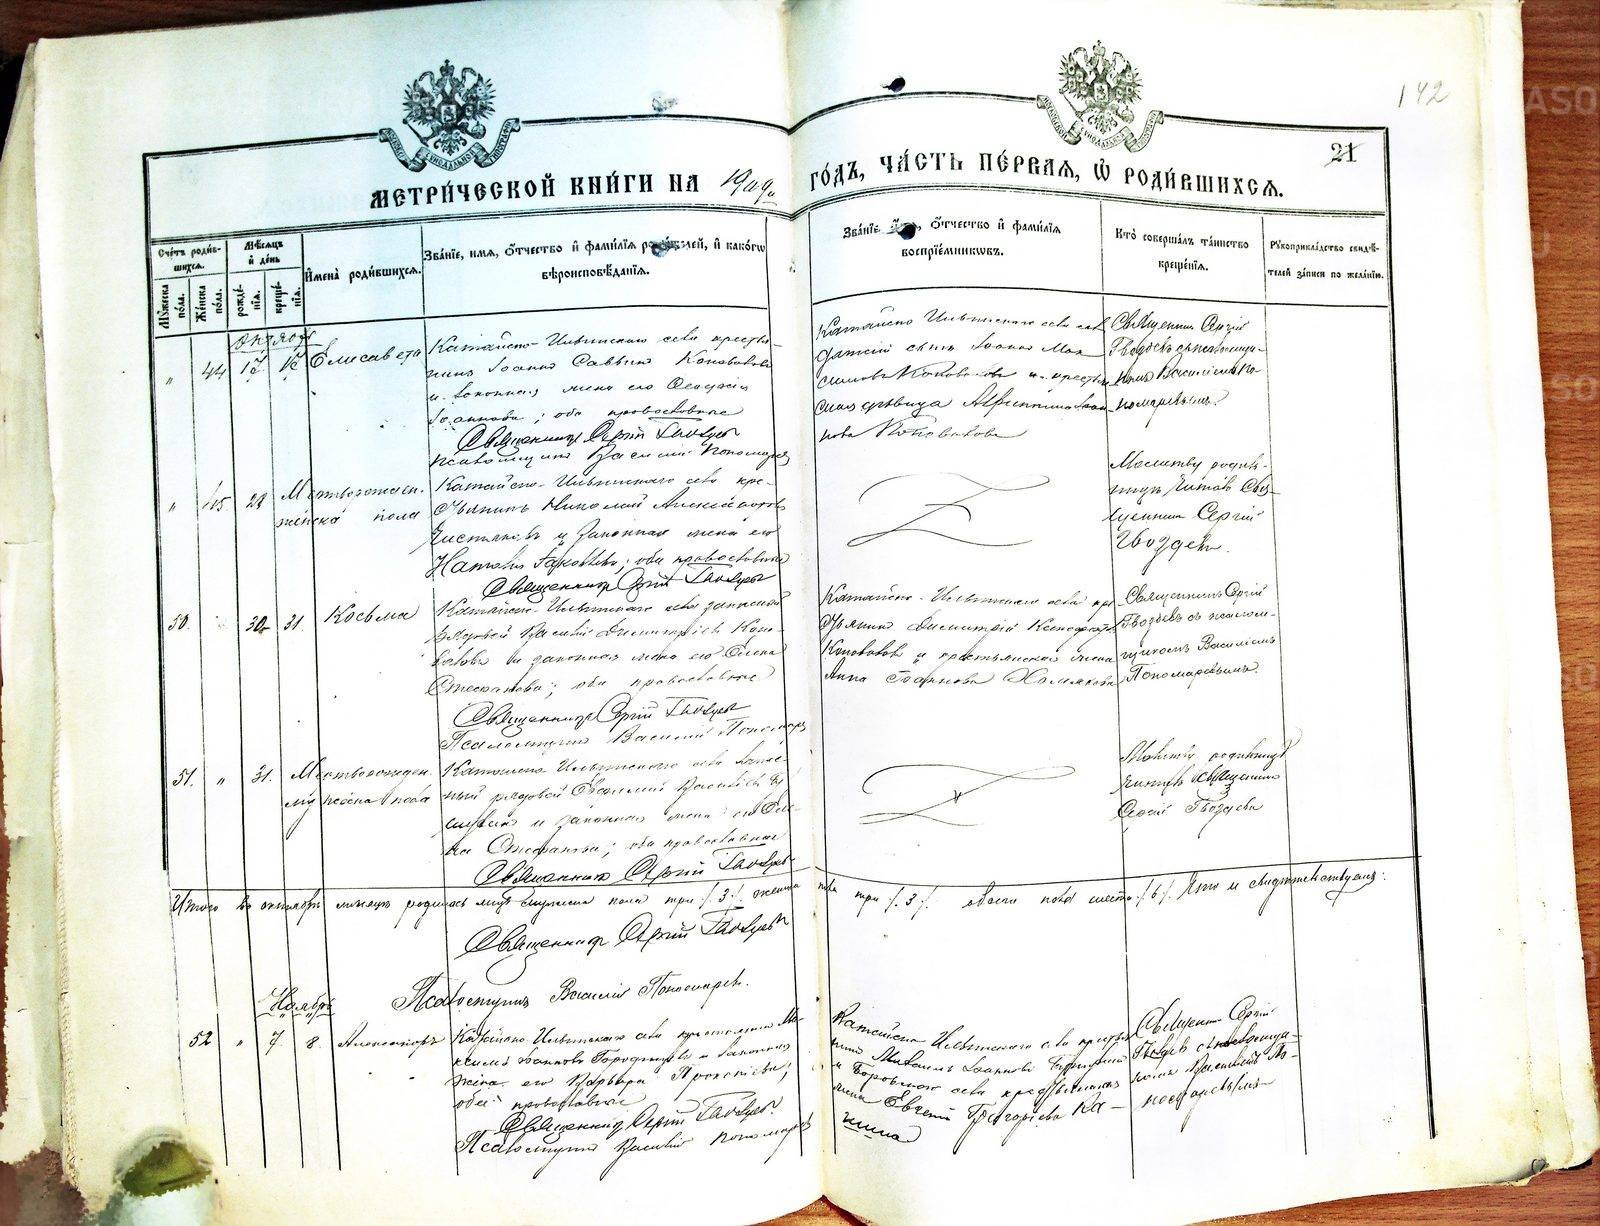 142
21
МЕТРИ́ЧЕСКОЙ КНИ́ГИ НА 1909 ГО́ДЪ, ЧА́СТЬ ПЕ́РВАЯ, Ѡ РОДИ́ВШИХСЯ.
Сче́тъ роди́в-
шихся.
Мꙋ́жеска по́ла.
Же́нска по́ла.
Мѣ́сяцъ и҆ де́нь
рожде́-
нїя.
креще́-
нїя.
И҆мена̀ роди́вшихся.
Зва́нїе, и҆мя, ѻ҆́тчество и҆ фами́лїя роди́телей, и҆ како́гѡ
вѣроисповѣ́данїя.
Зва́нїе, и҆́мя, ѻ҆́тчество и҆ фами́лїя
воспрїе́мникѡвъ.
Кто̀ соверша́лъ та́инство
креще́нїя.
Рꙋкоприкла́дство свидѣ́-
телей за́писи по жела́нїю.
Октябрь
" 44 17 18 Елисавета
Катайско-Ильинскаго села крестья-
нинъ Іоаннъ Саввинъ Коновалов
и законная жена его Ѳеодосія
Іоаннова; оба православные
Священникъ Сергій Гвоздевъ
Псаломщикъ Василій Пономарев
Катайско Ильинскаго села
Іоаннъ Мак
симовъ Коноваловъ и крестьян
ская дѣвица
нова Коновалова
Священникъ Сергій
Гвоздевъ съ псаломщи-
комъ Василіемъ По-
номаревымъ.
" 45 29 Мертворожден.
женска пола
Катайско-Ильинскаго села кре-
стьянинъ Николай Александровъ
Чистяковъ и законная жена его
Наталія Іаковлева; оба православные
Священникъ Сергій Гвоздевъ
Молитву родиль-
ницѣ читалъ Свя-
щенникъ Сергій
Гвоздевъ.
50. " 30 31. Косьма
Катайско-Ильинскаго села запасной
рядовой Василій Димитріевъ Коно-
валовъ и законная жена его Елена
Стефанова; оба православные
Священникъ Сергій Гвоздевъ
Псаломщикъ Василій Пономарев
Катайско-Ильинскаго села кре
стьянинъ Димитрій
Коноваловъ и крестьянская жена
Анна Іоаннова Холмякова
Священникъ Сергій
Гвоздевъ съ псалом-
щикомъ Василіемъ
Пономаревымъ.
51. " 31. Мертворожден.
мужеска пола
Катайско Ильинскаго села запас-
ный рядовой Евфимій Василіевъ
и законная жена его
Стефанова; оба православные
Священникъ Сергій Гвоздевъ
Молитву родильницѣ
читалъ священникъ
Сергій Гвоздевъ
Итого въ октябрѣ мѣсяцѣ родилось мужеска пола три /3/, женска пола три /3/, обоего пола шесть /6/. Что и свидѣтельствуемъ:
Священникъ Сергій Гвоздевъ
Псаломщикъ Василій Пономаревъ.
Ноябрь
52 " 7. 8. Александръ
Катайско-Ильинскаго села крестьянинъ Ма-
ксимъ Іоанновъ Городницовъ и законная
жена его Варвара Прокопіева;
оба православные
Священникъ Сергій Гвоздевъ.
Псаломщикъ Василій Пономарев
Катайско Ильинскаго села крестья
нинъ Михаилъ Іоанновъ
и Боровского села крестьянская
жена Евгенія Григоріева Ка-
шина
Священникъ Сергій
Гвоздевъ съ псаломщи-
комъ Василіемъ По-
номаревымъ